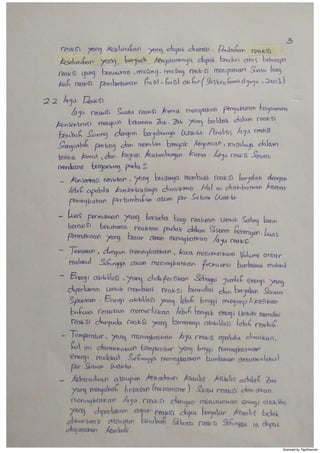 3
reaksi yang keseluruhan yang dapat diamati. Perubahan reaksi
keseluruhan yang banyak kemungkinannya dapat terdiri atas beberapa
reaksi yang berurutan, masing-masing reaksi merupakan suatu tahap
reaksi pembentukan hasil-hasil akhir
2.2 Laju Reaksi
Laju reaksi suatu reaksi kimia merupakan pengukuran bagaimana
konsentrasi maupun tekanan zat-zat yang terlibat dalam reaksi
berubah seiring dengan berjalannya waktu. Analisis laju reaksi
sangatlah penting dan memiliki banyak kegunaan, misalnya dalam
teknik kimia, dan kajian kesetimbangan kimia. Laju reaksi secara
mendasar bergantung pada :
- Konsentrasi reaktan, yang biasanya membuat reaksi berjalan dengan
lebih apabila konsentrasinya dinaikkan. Hal ini diakibatkan karena
peningkatan pertumbuhan atom per satuan waktu
- Luas permukaan yang tersedia bagi reaktan untuk saling ber
interaksi terutama reaktan padat dalam sistem heterogen. Luas
permukaan yang besar akan meningkatkan laju reaksi
- Tekanan, dengan meningkatkan, kita menurunkan volume antar
molekul sehingga akan meningkatkan frekuensi tumbukan molekul
- Energi aktivasi, yang didefinisikan sebagai jumlah energi yang
diperlukan untuk membuat reaksi bermulai dan berjalan secara
spontan. Energi aktivasi yang lebih tinggi mengimplikasikan
bahwa reaktan memerlukan lebih banyak energi untuk memulai
reaksi daripada reaksi yang berenergi aktivasi lebih rendah
- Temperatur, yang meningkatkan laju reaksi apabila dinaikkan,
hal ini dikarenakan temperatur yang tinggi meningkatkan
energi molekul sehingga meningkatkan tumbukan antar molekul
per satuan waktu
- Keberadaan ataupun ketiadaan katalis. Katalis adalah zat
yang mengubah lintasan (mekanisme) suatu reaksi dan akan
meningkatkan laju reaksi dengan menurunkan energi aktivasi
yang diperlukan agar reaksi dapat berjalan. Katalis tidak
dikonsumsi ataupun berubah selama reaksi sehingga ia dapat
digunakan kembali.
Scanned by TapScanner